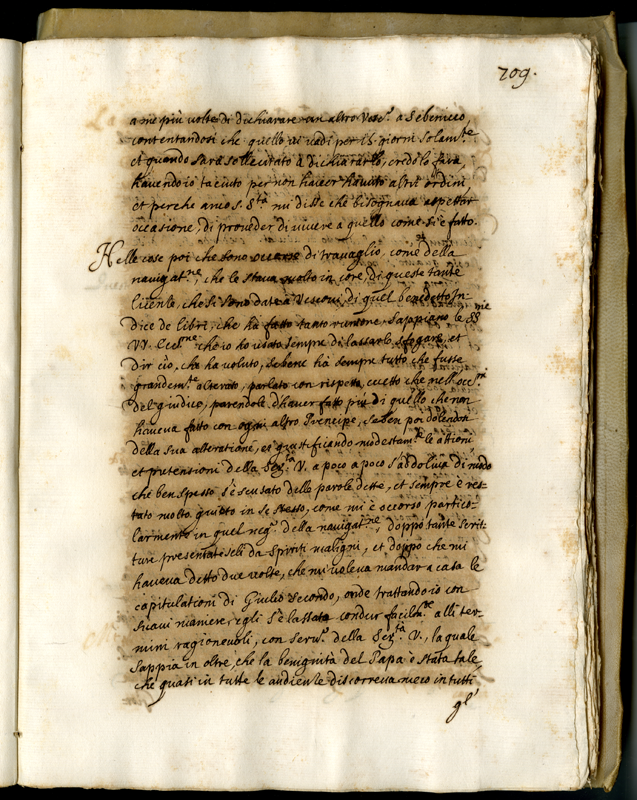 209.
a me più volte di dichiarare un altro Vesc.º a Sebenico,
contentandosi che quello vi vadi per 15. giorni solam.te
et quando sarà sollecitato à dichiararlo, credo lo farà,
havendo io taciuto per non haver havuto altri ordini,
et perche anco S. S.tà mi disse che bisognava aspettar
occasione, di proveder di vivere a quello come si è fatto.
Nelle cose poi che sono occorse di travaglio, come della
navigat.ne, che le stava molto in core, di queste tante
licenze, che si sono date à Vescovi, di quel benedetto In-
dice de libri, che hà fatto tanto rumore. Sappiano le SS.me
VV. Ecc.me che io ho usato sempre di lassarlo sfogare, et
dir ciò, che ha voluto, sebene hà sempre tutto che fusse
grandem.te alterato, parlato con rispetto, eccetto che nell'occ.ni
del giudice, parendole d'haver fatto più di quello che non
haveva fatto con ogni altro Prencipe, se ben poi dolendosi
della sua alteratione, et giustificando modestam.te le attioni
et pretensioni della Ser.tà V. a poco a poco s'addolciva di modo
che ben spesso s'è scusato delle parole dette, et sempre è res-
tato molto quieto in se stesso, come mi è occorso partico-
larmente in quel neg.º della navigat.ne, doppò tante scrit-
ture presentateseli da spiriti maligni, et doppò che mi
haveva detto due volte, che mi voleva mandar a casa le
capitulationi di Giulio secondo, onde trattando io con
suavi maniere, egli s'è lassato condur facilm.te alli ter-
mini ragionevoli, con serv.º della Ser.tà V., la quale
sappia in oltre, che la benignità del Papa è stata tale,
che quasi in tutte le audienze discorreva meco in tutti
gl'